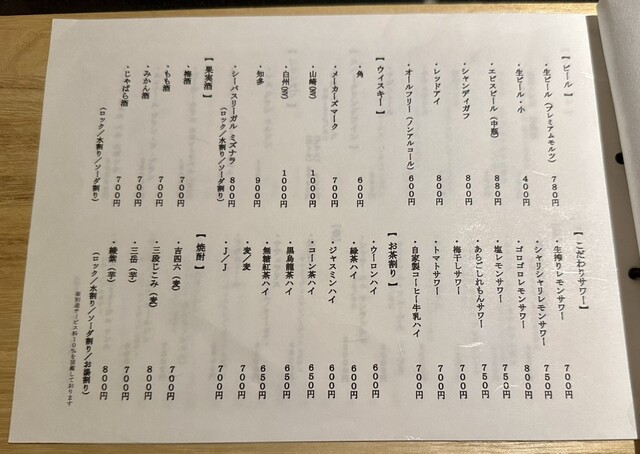 【ビール】
・生ビール（プレミアムモルツ） 780円
・生ビール・小 400円
・エビスビール（中瓶） 880円
・シャンディガフ 800円
・レッドアイ 800円
・オールフリー（ノンアルコール） 600円
【ウィスキー】
・角 600円
・メーカーズマーク 700円
・山崎(NV) 1000円
・白州(NV) 1000円
・知多 900円
・シーバスリーガル ミズナラ 800円
（ロック／水割り／ソーダ割り）
【果実酒】
・梅酒 700円
・もも酒 700円
・みかん酒 700円
・じゃばら酒 700円
（ロック／水割り／ソーダ割り）
【こだわりサワー】
・生搾りレモンサワー 700円
・シャリシャリレモンサワー 750円
・ゴロゴロレモンサワー 800円
・塩レモンサワー 750円
・あらごしれもんサワー 750円
・梅干しサワー 700円
・トマトサワー 700円
・自家製コーヒー牛乳ハイ 700円
【お茶割り】
・ウーロンハイ 600円
・緑茶ハイ 600円
・ジャスミンハイ 600円
・コーン茶ハイ 650円
・黒烏龍茶ハイ 650円
・無糖紅茶ハイ 650円
・麦／麦 700円
・J／J 700円
【焼酎】
・吉四六（麦） 700円
・三段じこみ（麦） 800円
・三岳（芋） 700円
・綾紫（芋） 800円
（ロック／水割り／ソーダ割り／お湯割り）
※別途サービス料10％を頂戴しております